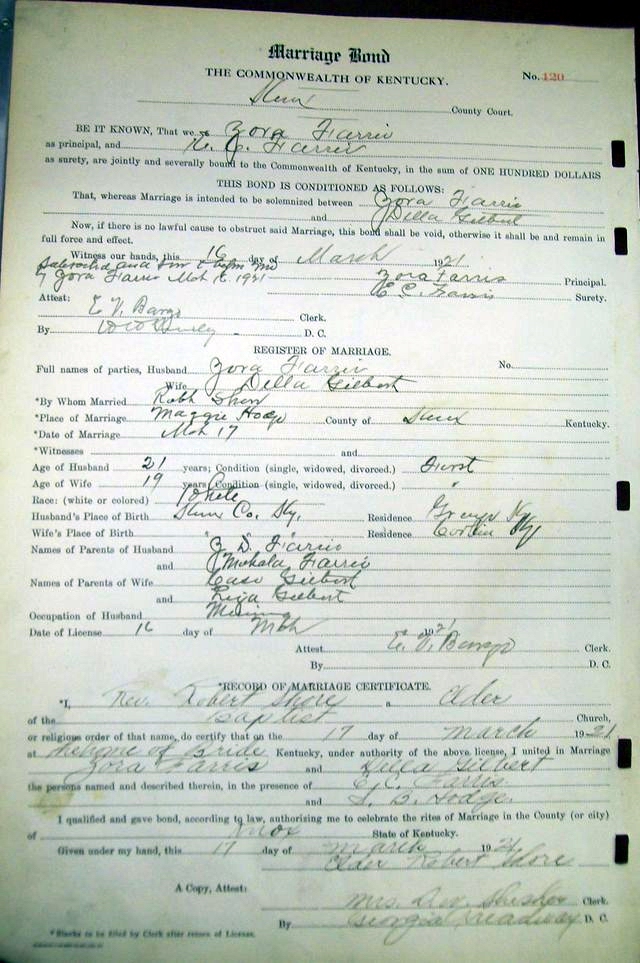 Marriage Bond
THE COMMONWEALTH OF KENTUCKY.
No. 120
Knox County Court.
BE IT KNOWN, That we Zora Farris
as principal, and E. C. Farris
as surety, are jointly and severally bound to the Commonwealth of Kentucky, in the sum of ONE HUNDRED DOLLARS
THIS BOND IS CONDITIONED AS FOLLOWS:
That, whereas Marriage is intended to be solemnized between Zora Farris
and Della Gilbert
Now, if there is no lawful cause to obstruct said Marriage, this bond shall be void, otherwise it shall be and remain in
full force and effect.
Witness our hands, this 16 day of March 1921
Subscribed and Sworn to before me
by Zora Farris Mch 16, 1921 Zora Farris Principal.
E C. Farris Surety.
Attest:
Clerk.
By D. C.
REGISTER OF MARRIAGE.
Full names of parties, Husband Zora Farris No.
Wife Della Gilbert
*By Whom Married Robt Shore
*Place of Marriage Maggie Hodge County of Knox Kentucky.
*Date of Marriage Mch 17
*Witnesses and
Age of Husband 21 years; Condition (single, widowed, divorced.) First
Age of Wife 19 years; Condition (single, widowed, divorced.) "
Race: (white or colored) White
Husband's Place of Birth Knox Co, Ky. Residence Ky
Wife's Place of Birth " " " Residence Corbin Ky
Names of Parents of Husband Z D. Farris
and Farris
Names of Parents of Wife Gilbert
and Liza Gilbert
Occupation of Husband Mining
Date of License 16 day of Mch 1921
Attest Clerk.
By D. C.
*RECORD OF MARRIAGE CERTIFICATE.
*I, Rev. Robert Shore a Elder
of the Baptist Church,
or religious order of that name, do certify that on the 17 day of March 1921
at the home of Bride Kentucky, under authority of the above license, I united in Marriage
Zora Farris and Della Gilbert
the persons named and described therein, in the presence of E. C. Farris
and Hodge.
I qualified and gave bond, according to law, authorizing me to celebrate the rites of Marriage in the County (or city)
of Knox State of Kentucky.
Given under my hand, this 17 day of March 1921
Elder Robert Shore
A Copy, Attest:
Mrs. Clerk.
By Georgia Treadway D. C.
*Blanks to be filed by Clerk after return of License.